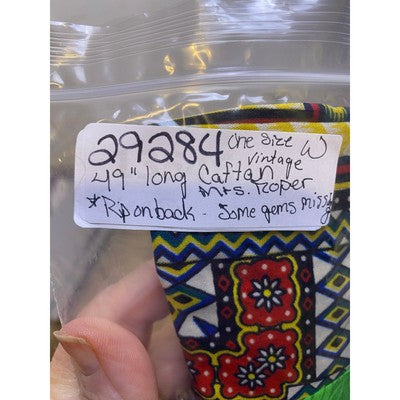 29284 One Size W
49" long Caftan vintage
Mrs. Roper
*Rip on back - Some gems missing